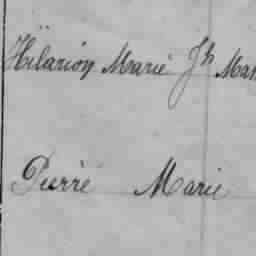 Hilarion Marie Jh Mar
Pierre Marie